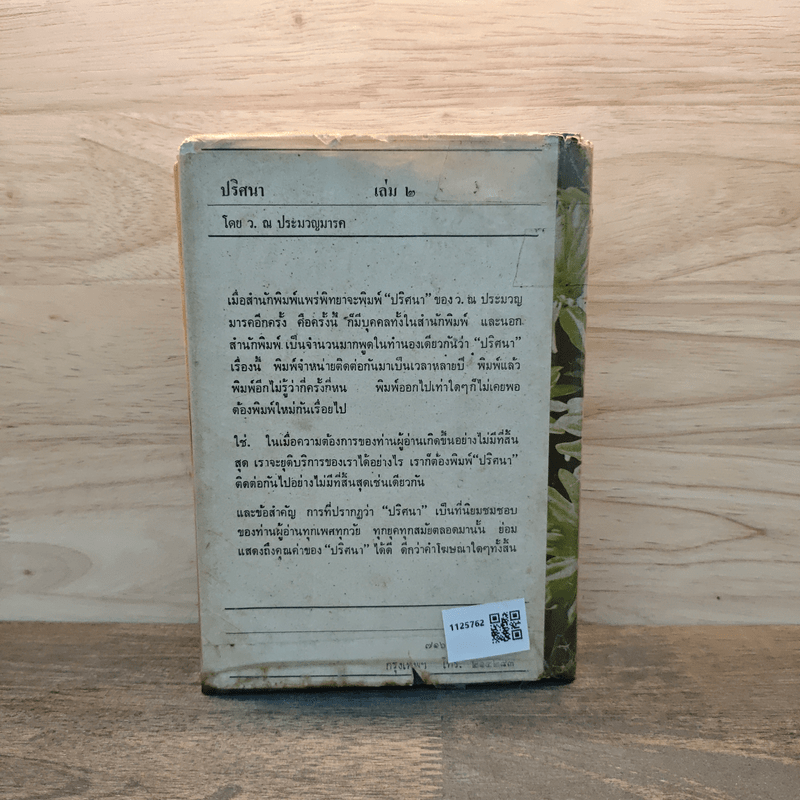 ปริศนา เล่ม ๒
โดย ว. ณ ประมวญมารค
เมื่อสำนักพิมพ์แพร่พิทยาจะพิมพ์ “ปริศนา” ของ ว. ณ ประมวญ
มารคอีกครั้ง คือครั้งนี้ ก็มีบุคคลทั้งในสำนักพิมพ์ และนอก
สำนักพิมพ์ เป็นจำนวนมากพูดในทำนองเดียวกันว่า “ปริศนา”
เรื่องนี้ พิมพ์จำหน่ายติดต่อกันมาเป็นเวลาหลายปี พิมพ์แล้ว
พิมพ์อีกไม่รู้ว่ากี่ครั้งกี่หน พิมพ์ออกไปเท่าใดๆ ก็ไม่เคยพอ
ต้องพิมพ์ใหม่กันเรื่อยไป
ใช่. ในเมื่อความต้องการของท่านผู้อ่านเกิดขึ้นอย่างไม่มีที่สิ้น
สุด เราจะยุติบริการของเราได้อย่างไร เราก็ต้องพิมพ์ “ปริศนา”
ติดต่อกันไปอย่างไม่มีที่สิ้นสุดเช่นเดียวกัน
และข้อสำคัญ การที่ปรากฏว่า “ปริศนา” เป็นที่นิยมชมชอบ
ของท่านผู้อ่านทุกเพศทุกวัย ทุกยุคทุกสมัยตลอดมานั้น ย่อม
แสดงถึงคุณค่าของ “ปริศนา” ได้ดี ดีกว่าคำโฆษณาใดๆทั้งสิ้น
1125762
๗๑๖
กรุงเทพฯ โทร.